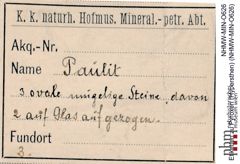 K. k. naturh. Hofmus. Mineral.-petr. Abt.
Akq.-Nr.
Name Paulit
3 ovale mugelige Steine, davon
2 auf Glas aufgezogen.
Fundort
3.
NHMW-MIN-O626
(NHMW-MIN-O626)
nhm